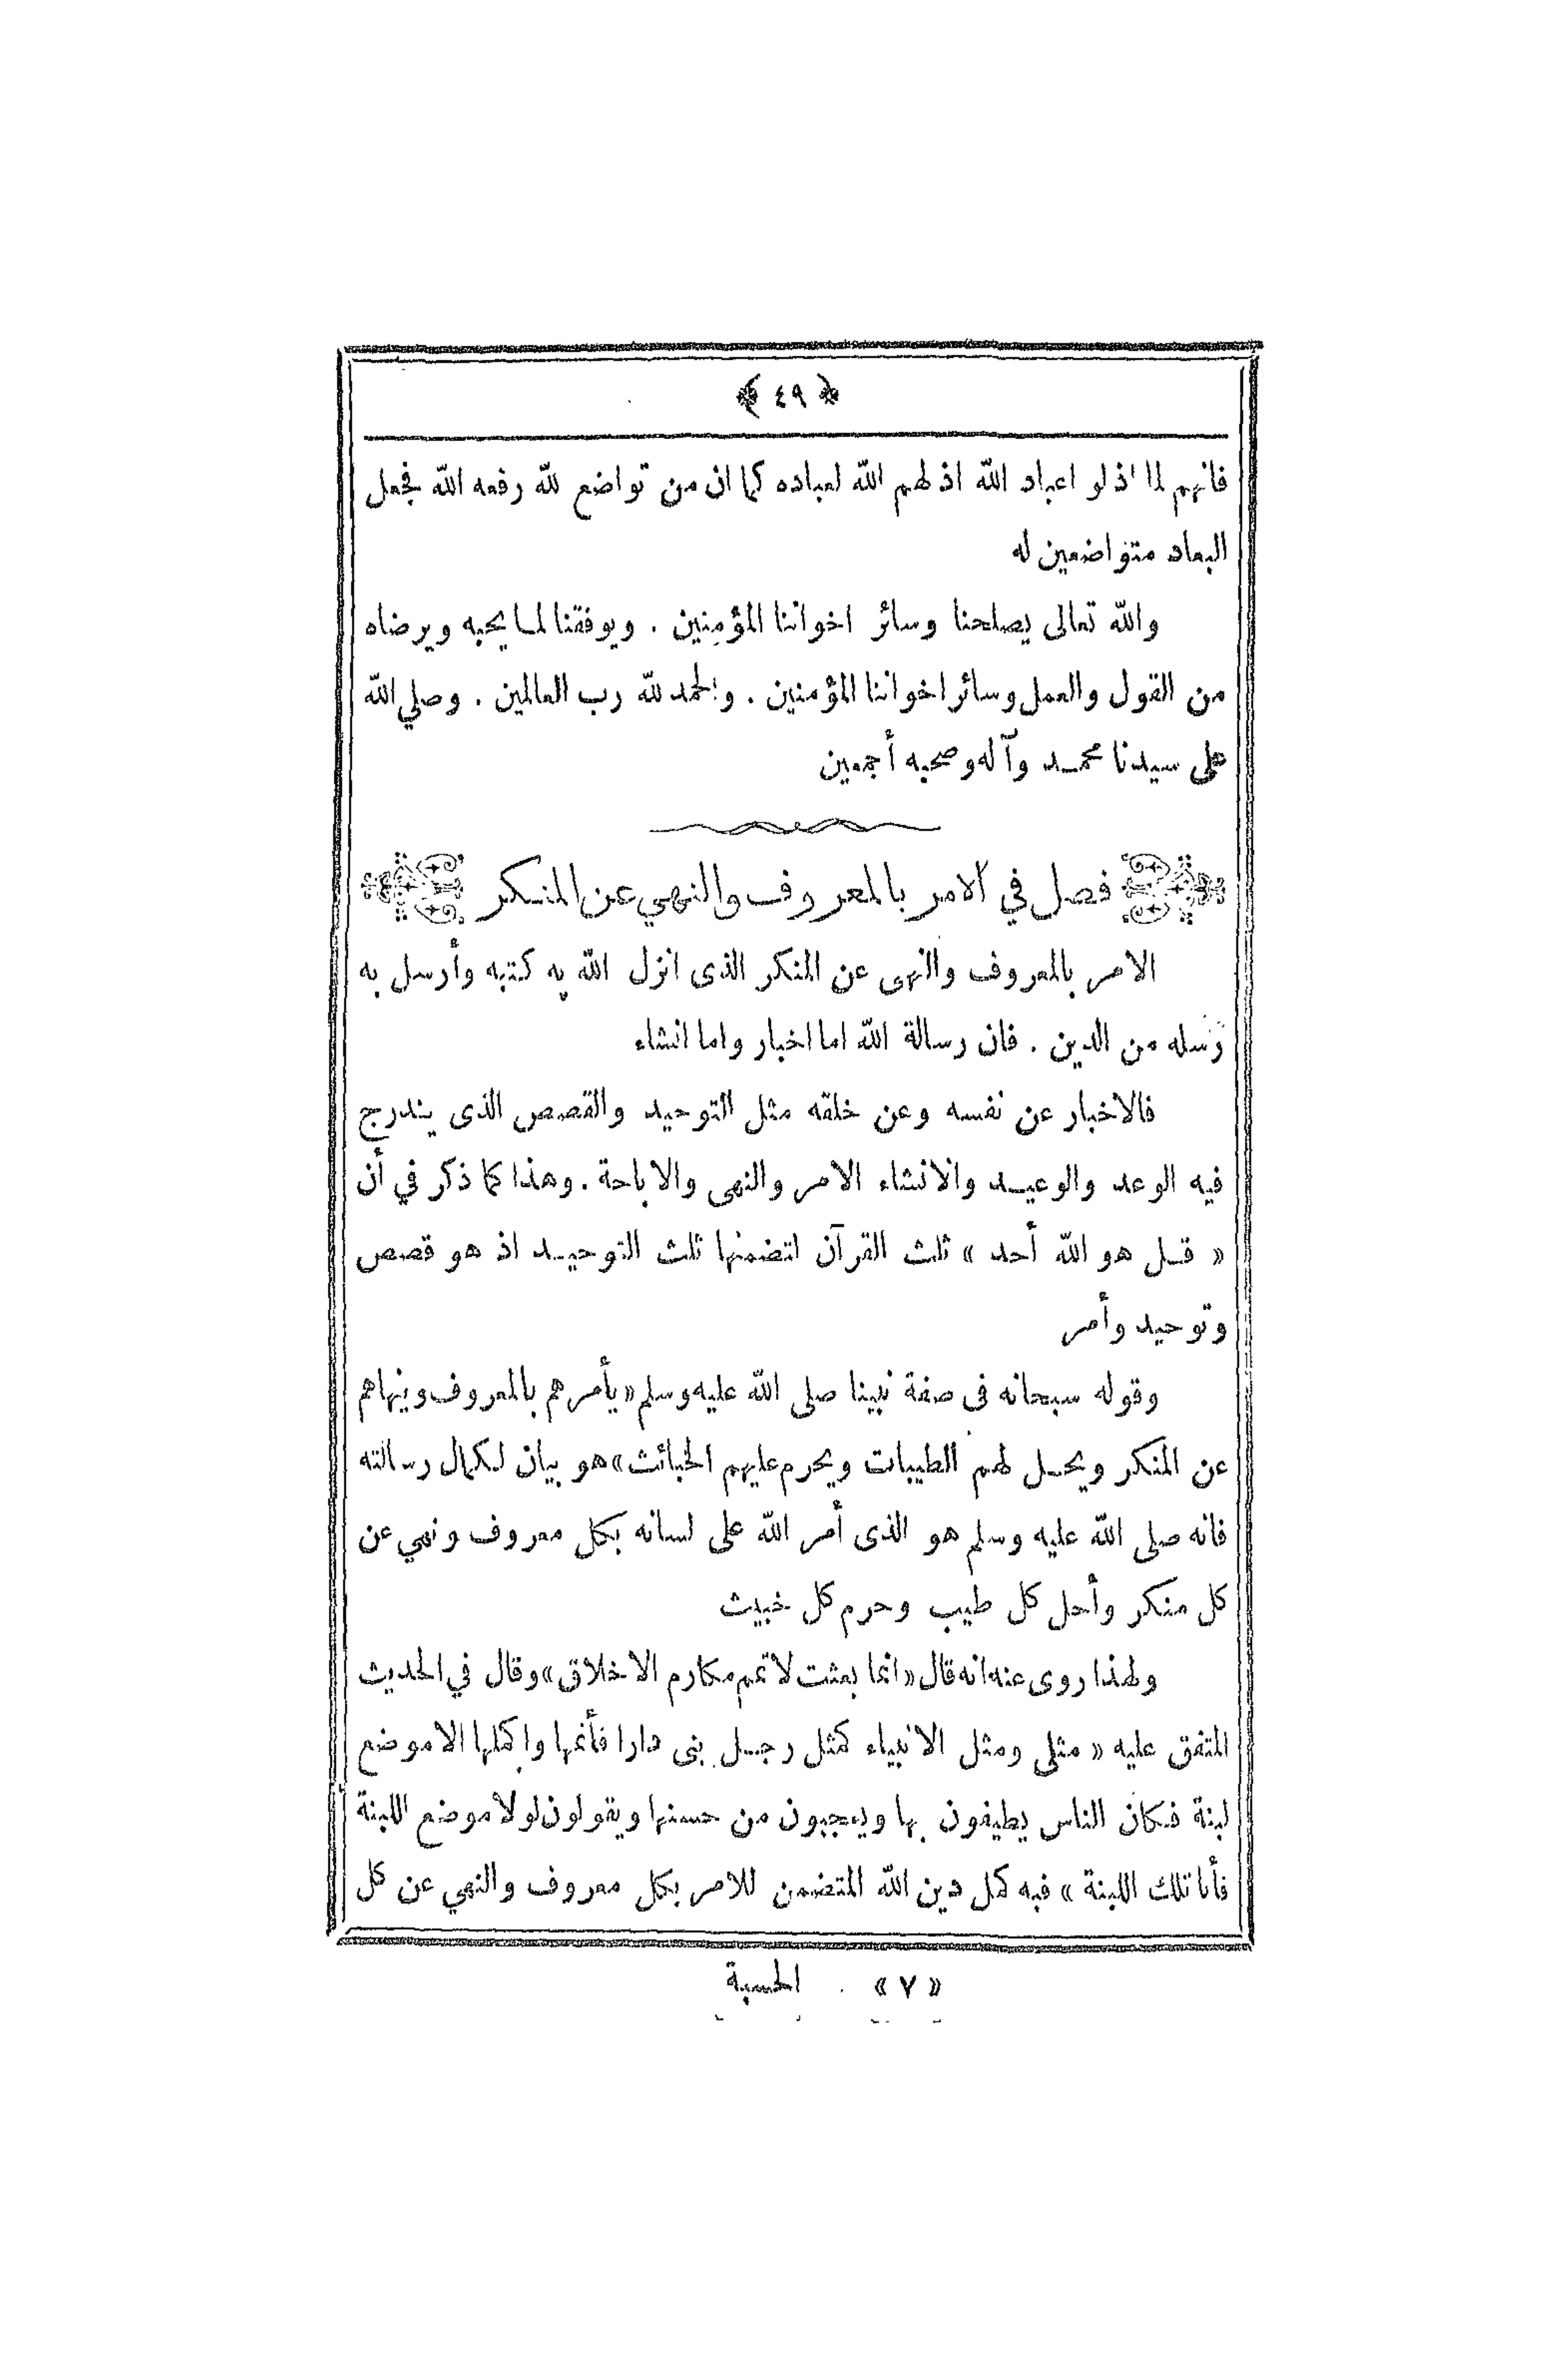 ﴿ ٤٩ ﴾
فانهم لما اذلوا عباد الله اذلهم الله لعباده كما ان من تواضع لله رفعه الله فجعل
العباد متواضعين له
والله تعالى يصلحنا وسائر اخواننا المؤمنين . ويوفقنا لما يحبه ويرضاه
من القول والعمل وسائر اخواننا المؤمنين . والحمد لله رب العالمين . وصلي الله
على سيدنا محمد وآله وصحبه أجمعين
فصل في الامر بالمعروف والنهي عن المنكر
الامر بالمعروف والنهى عن المنكر الذى انزل الله به كتبه وأرسل به
رسله من الدين . فان رسالة الله اما اخبار واما انشاء
فالاخبار عن نفسه وعن خلقه مثل التوحيد والقصص الذى يندرج
فيه الوعد والوعيد والانشاء الامر والنهى والاباحة . وهذا كما ذكر في أن
« قل هو الله أحد » ثلث القرآن لتضمنها ثلث التوحيد اذ هو قصص
وتوحيد وأمر
وقوله سبحانه فى صفة نبينا صلى الله عليه وسلم « يأمرهم بالمعروف وينهاهم
عن المنكر ويحل لهم الطيبات ويحرم عليهم الخبائث » هو بيان لكمال رسالته
فانه صلى الله عليه وسلم هو الذى أمر الله على لسانه بكل معروف ونهي عن
كل منكر وأحل كل طيب وحرم كل خبيث
ولهذا روى عنه انه قال « انما بعثت لاتمم مكارم الاخلاق » وقال في الحديث
المتفق عليه « مثلى ومثل الانبياء كمثل رجل بنى دارا فأتمها واكملها الا موضع
لبنة فكان الناس يطيفون بها ويعجبون من حسنها ويقولون لولا موضع اللبنة
فأنا تلك اللبنة » فبه كمل دين الله المتضمن للامر بكل معروف والنهي عن كل
« ٧ » الحسبة